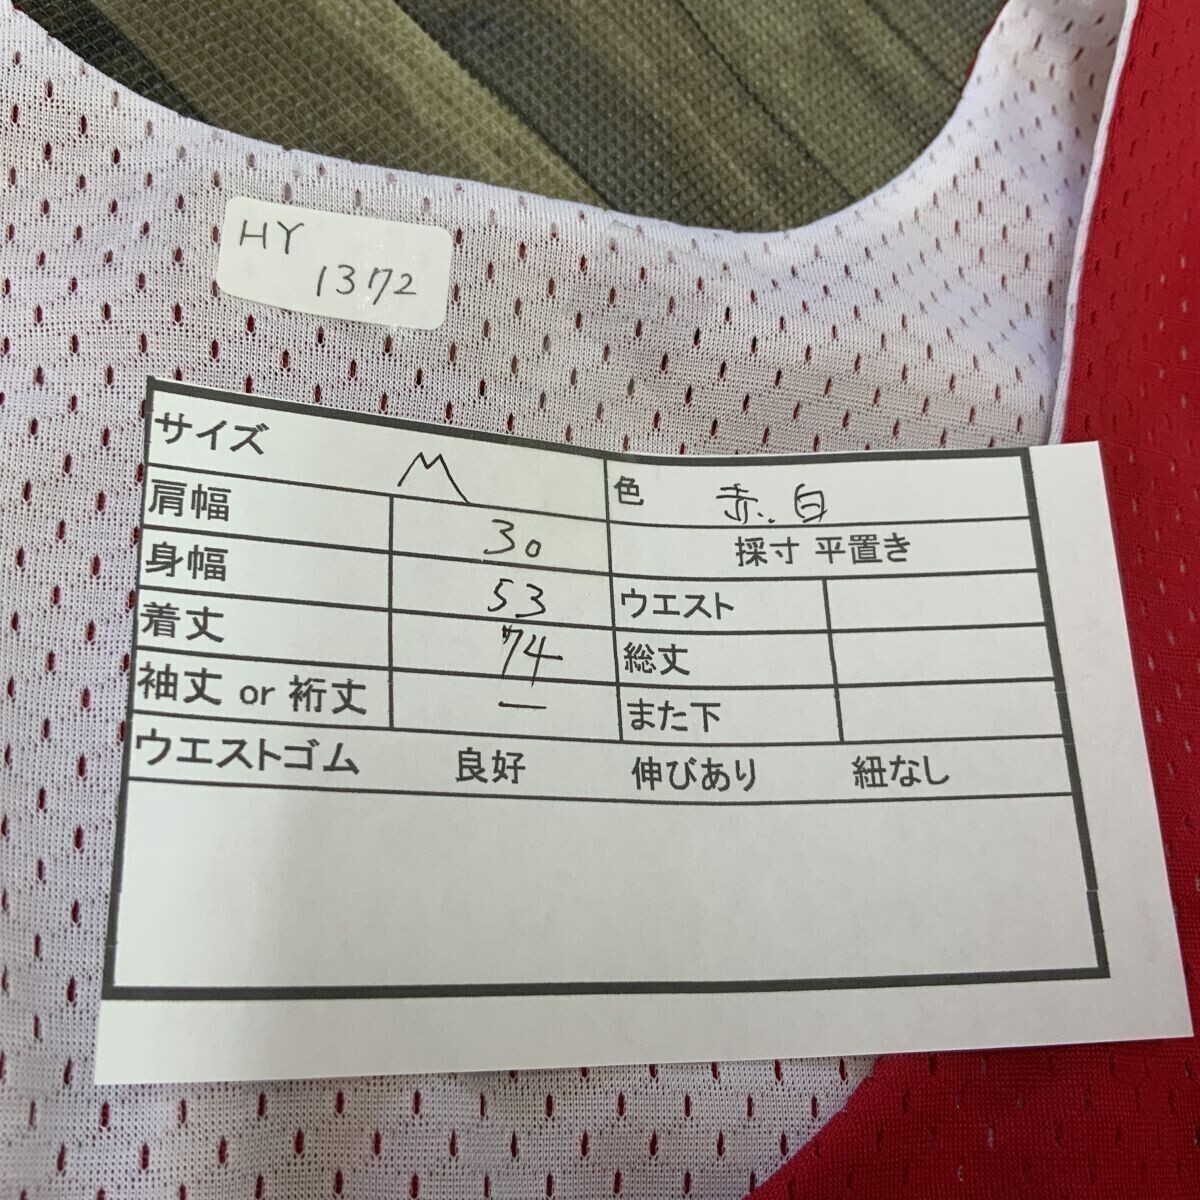 HY
1372
サイズ M 色 赤.白
肩幅 30 採寸 平置き
身幅 53 ウエスト
着丈 74 総丈
袖丈 or 裄丈 ー また下
ウエストゴム 良好 伸びあり 紐なし